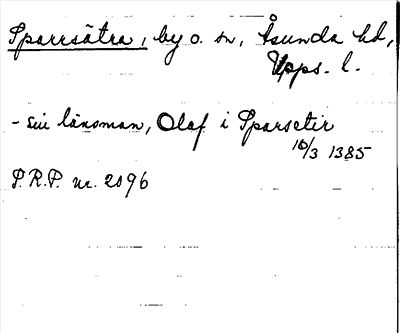 Sparrsätra, by o. sn, Åsunda hd,
Upps. l.
- sin länsman, Olaf i Sparseter
16/3 1385
P.R.P. nr. 2096